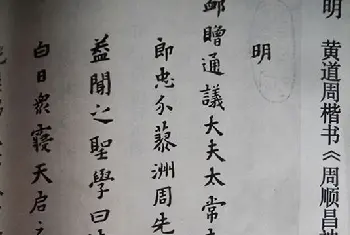 明 黄道周楷书《周顺昌
明
贈通議大夫太常
郎忠介蓼洲周先
蓋聞之聖學曰
白日衆寢天启